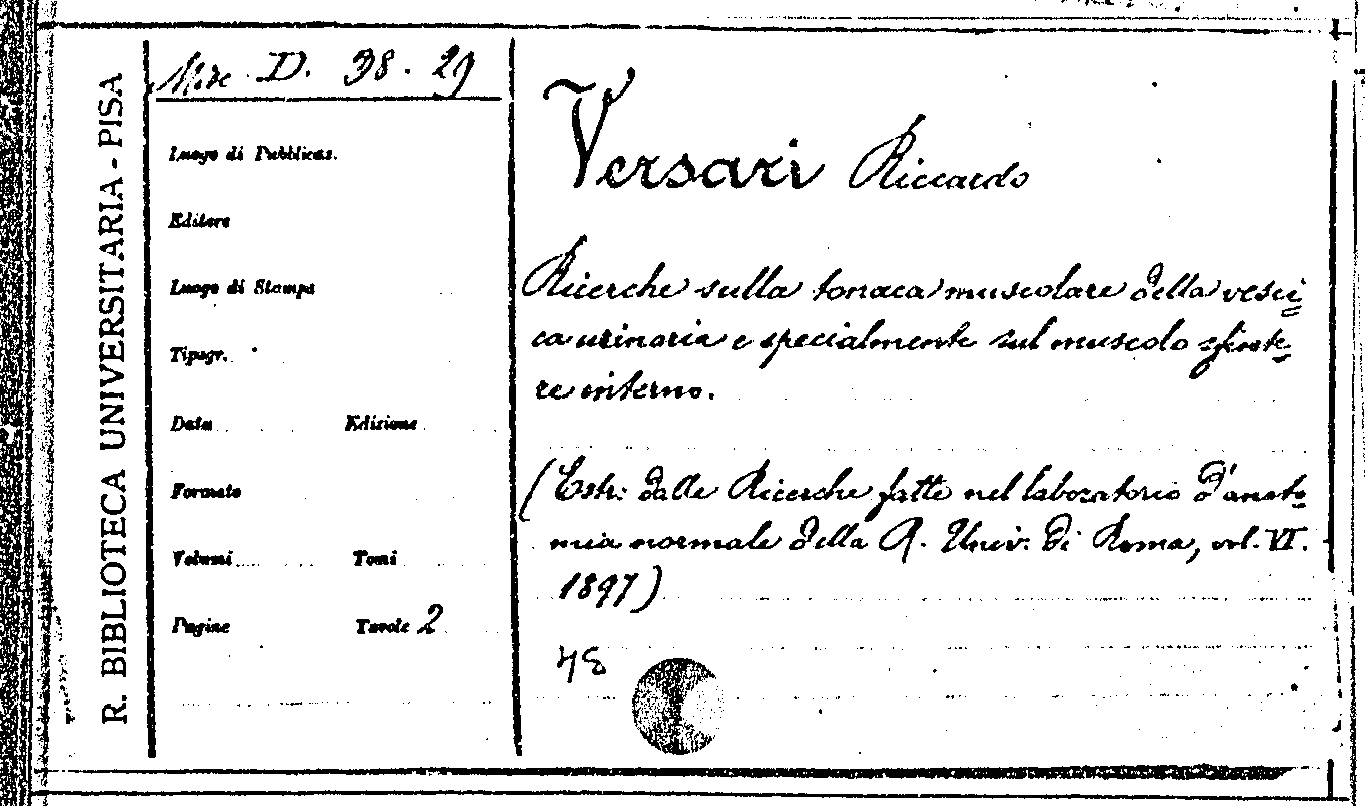 R. BIBLIOTECA UNIVERSITARIA - PISA
Misc D. 38. 29
Luogo di Pubblicaz.
Editore
Luogo di Stampa
Tipogr.
Data Edizione
Formato
Volumi Tomi
Pagine Tavole 2
Versari Riccardo
Ricerche sulla tonaca muscolare della vesci=
ca urinaria e specialmente sul muscolo sfinte=
re interno.
(Estr: dalle Ricerche fatte nel laboratorio d'anato=
mia normale della R. Univ. di Roma, vol. VI.
1897)